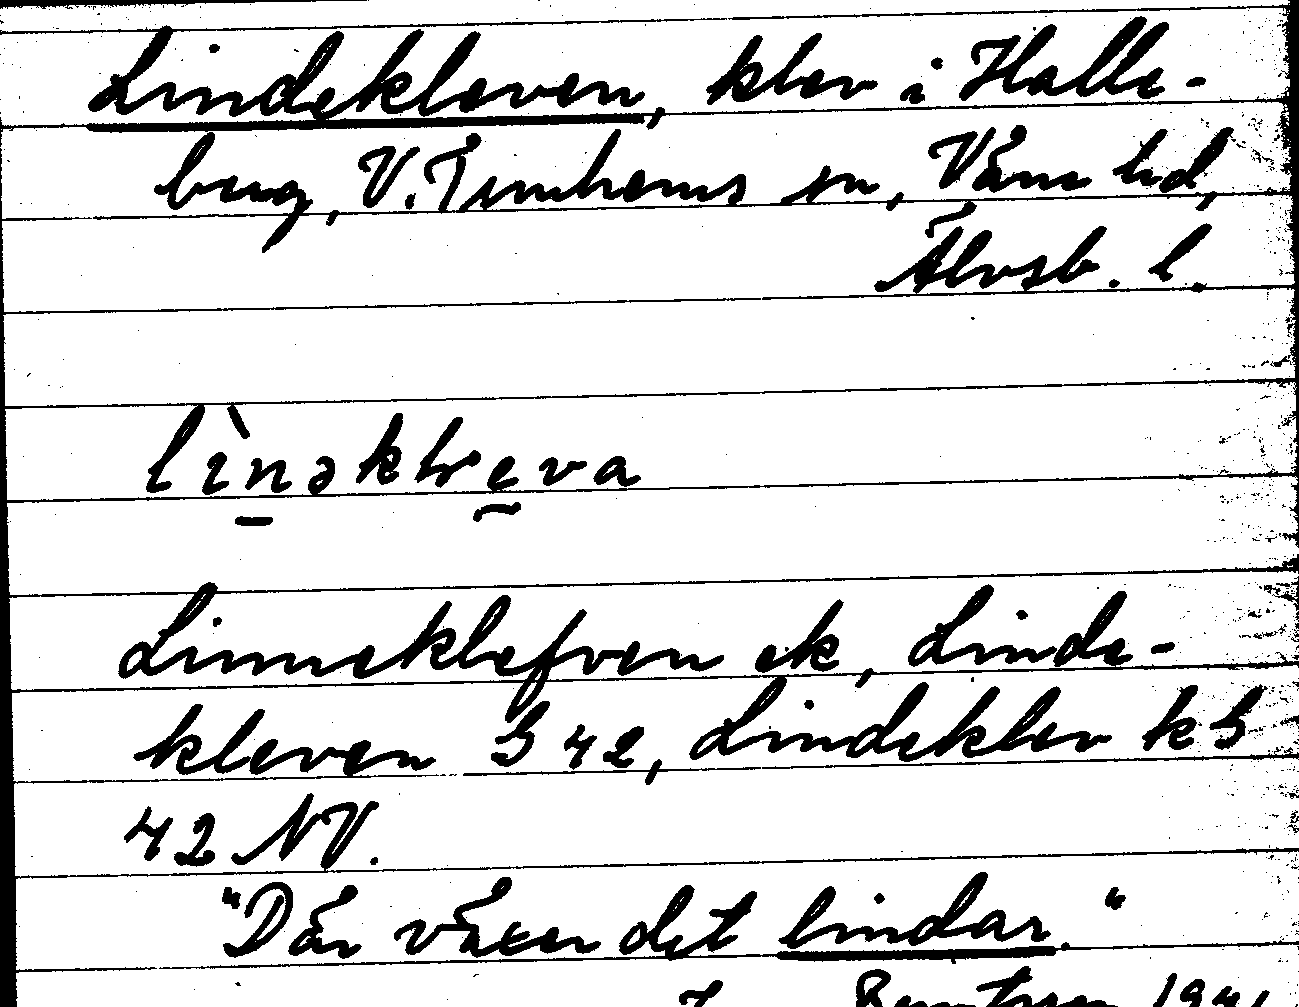 Lindekleven, klev i Halle-
berg, V. Tunhems sn, Väne hd,
Älvsb. l.
lìnəklreva
Linneklefven ek, Linde-
kleven G 42, Lindeklev kG
42 NV.
"Där växer det lindar."
1941